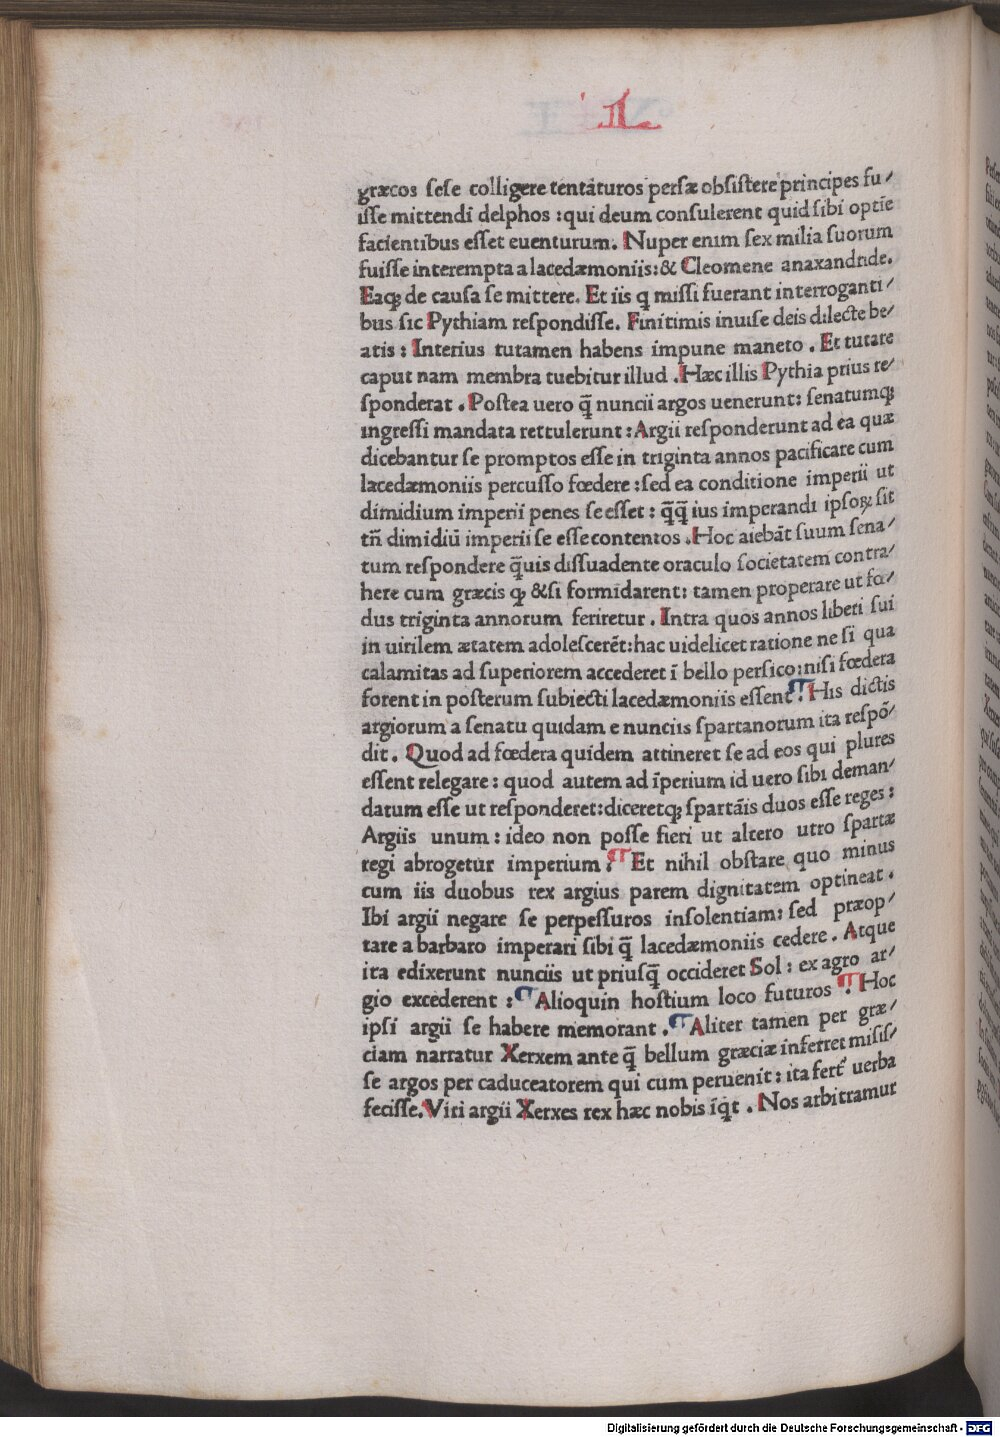 L
græcos ſeſe colligere tentaturos perſæ obſiſtere principes fu⸗
iſſe mittendi delphos : qui deum conſulerent quid ſibi optīe
facientibus eſſet euenturum. Nuper enim ſex milia ſuorum
fuiſſe interempta a lacedæmoniis: & Cleomene anaxandride.
Eaqꝫ de cauſa ſe mittere. Et iis q miſſi fuerant interroganti⸗
bus ſic Pythiam reſpondiſſe. Finitimis inuiſe deis dilecte be⸗
atis : Interius tutamen habens impune maneto . Et tutare
caput nam membra tuebitur illud . Hæc illis Pythia prius re⸗
ſponderat . Poſtea uero q̄ nuncii argos uenerunt: ſenatumqꝫ
ingreſſi mandata rettulerunt : Argii reſponderunt ad ea quæ
dicebantur ſe promptos eſſe in triginta annos pacificare cum
lacedæmoniis percuſſo fœdere : ſed ea conditione imperii ut
dimidium imperii penes ſe eſſet : q̄q̄ ius imperandi ipſoꝝ ſit
tn̄ dimidiū imperii ſe eſſe contentos . Hoc aiebāt ſuum ſena⸗
tum reſpondere q̄uis diſſuadente oraculo ſocietatem contra⸗
here cum græcis qꝫ & ſi formidarent: tamen properare ut fœ⸗
dus triginta annorum feriretur . Intra quos annos liberi ſui
in uirilem ætatem adoleſcerēt: hac uidelicet ratione ne ſi qua
calamitas ad ſuperiorem accederet ī bello perſico: niſi fœdera
forent in poſterum ſubiecti lacedæmoniis eſſent . ¶ His dictis
argiorum a ſenatu quidam e nunciis ſpartanorum ita reſpō⸗
dit . Quod ad fœdera quidem attineret ſe ad eos qui plures
eſſent relegare : quod autem ad īperium id uero ſibi deman⸗
datum eſſe ut reſponderet: diceretqꝫ ſpartāis duos eſſe reges :
Argiis unum : ideo non poſſe fieri ut altero utro ſpartæ
regi abrogetur imperium . ¶ Et nihil obſtare quo minus
cum iis duobus rex argius parem dignitatem optineat .
Ibi argii negare ſe perpeſſuros inſolentiam: ſed præop⸗
tare a barbaro imperari ſibi q̄ lacedæmoniis cedere . Atque
ita edixerunt nunciis ut priuſq̄ occideret Sol : ex agro ar⸗
gio excederent : ¶ Alioquin hoſtium loco futuros . ¶ Hoc
ipſi argii ſe habere memorant . ¶ Aliter tamen per græ⸗
ciam narratur Xerxem ante q̄ bellum græciæ inferret miſiſ⸗
ſe argos per caduceatorem qui cum peruenit : ita fert᷑ uerba
feciſſe. Viri argii Xerxes rex hæc nobis īqt . Nos arbitramur
Digitalisierung gefördert durch die Deutsche Forschungsgemeinschaft - DFG